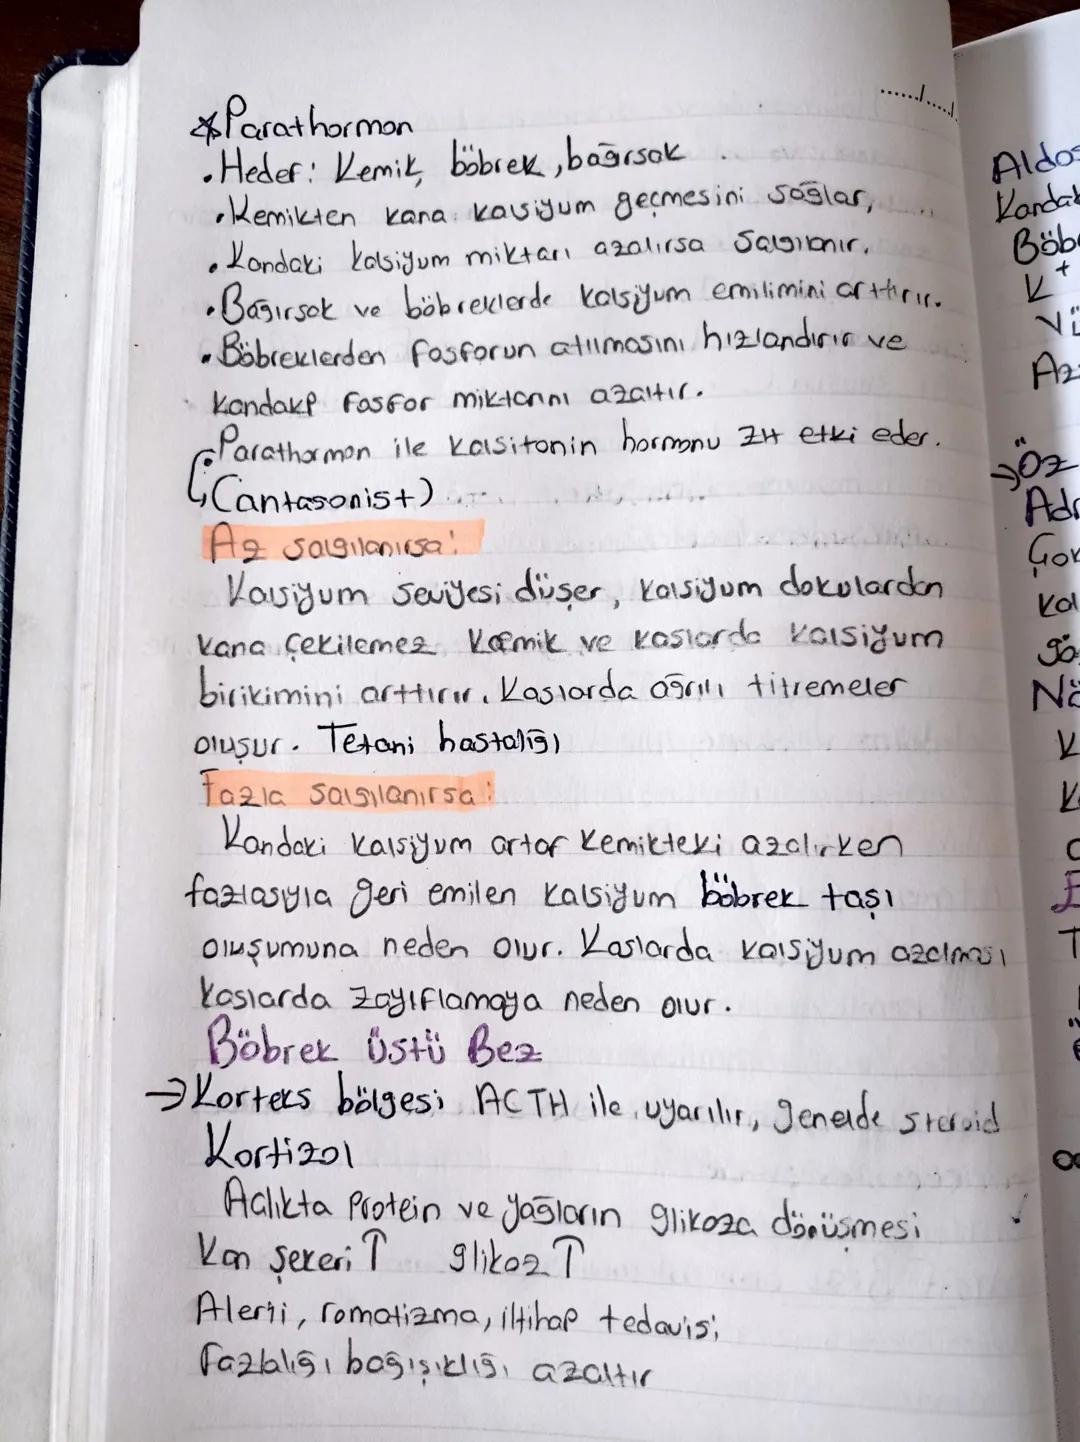 * Parathormon
• Hedef: Kemik, böbrek, bağırsak
• Kemikten kana kalsiyum geçmesini sağlar,
• Kandaki kalsiyum miktarı azalırsa salgılanır.
• Bağırsak ve böbreklerde kalsiyum emilimini arttırır.
• Böbreklerden fosforun atılmasını hızlandırır ve
kandaki fosfor miktarını azaltır.
• Parathormon ile kalsitonin hormonu zıt etki eder.
↳ (antagonist)
Az salgılanırsa:
Kalsiyum seviyesi düşer, kalsiyum dokulardan
kana çekilemez. Kemik ve kaslarda kalsiyum
birikimini arttırır. Kaslarda ağrılı titremeler
oluşur. Tetani hastalığı
Fazla salgılanırsa:
Kandaki kalsiyum artar kemikteki azalırken
fazlasıyla geri emilen kalsiyum böbrek taşı
oluşumuna neden olur. Kaslarda kalsiyum azalması
kaslarda zayıflamaya neden olur.
Böbrek üstü Bez
→ Korteks bölgesi ACTH ile uyarılır, genelde steroid
Kortizol
Açlıkta protein ve yağların glikoza dönüşmesi
Kan şekeri ↑ glikoz ↑
Alerji, romatizma, iltihap tedavisi
Fazlalığı bağışıklığı azaltır
Aldos
Kandak
Böbr
K+
Vü
Az
→ Öz
Adr
Kal
gö
Nö